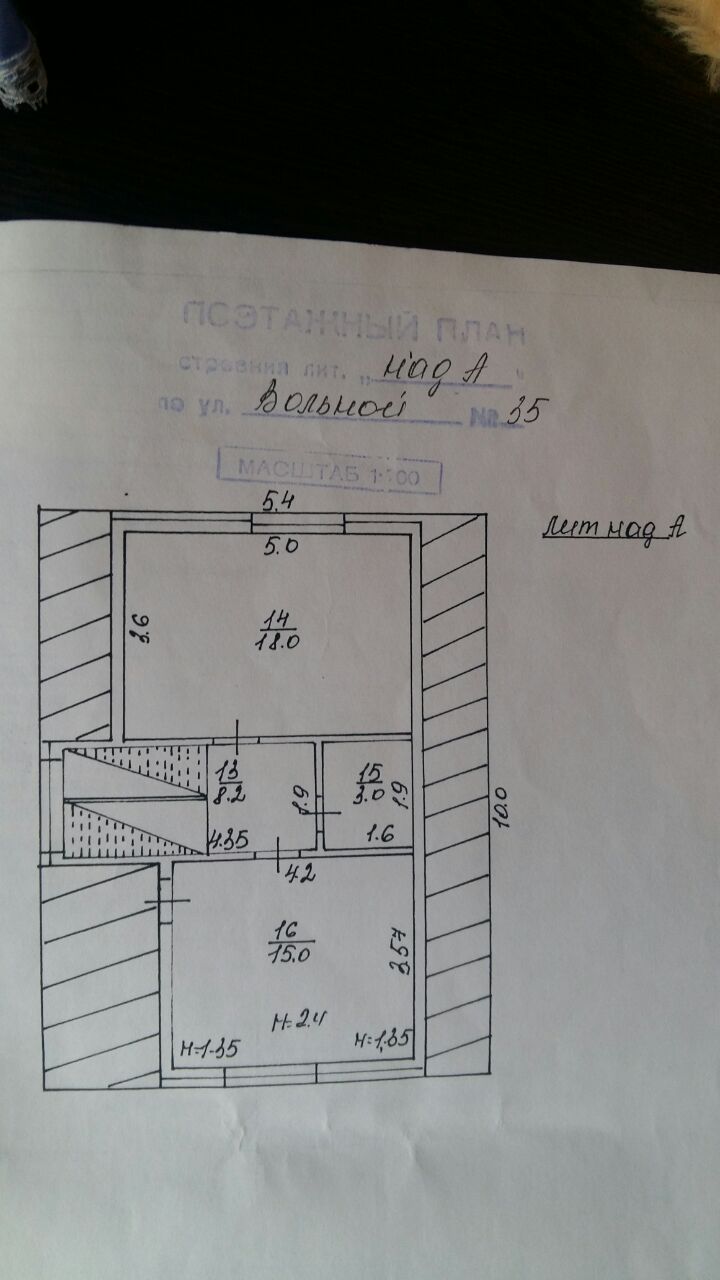 ПОЭТАЖНЫЙ ПЛАН
строения лит. „ над А "
по ул. Вольной № 35
МАСШТАБ 1:100
Лит над А
5.4
5.0
3.6
14
18.0
13
8.2
1.9
15
3.0
1.9
10.0
4.35
1.6
4.2
16
15.0
3.57
H=2.4
H=1.35
H=1.35